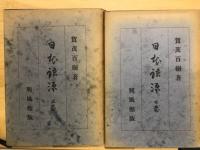 賀茂百樹著
日本語源
上卷
興風館版
賀茂百樹著
日本語源
下卷
興風館版